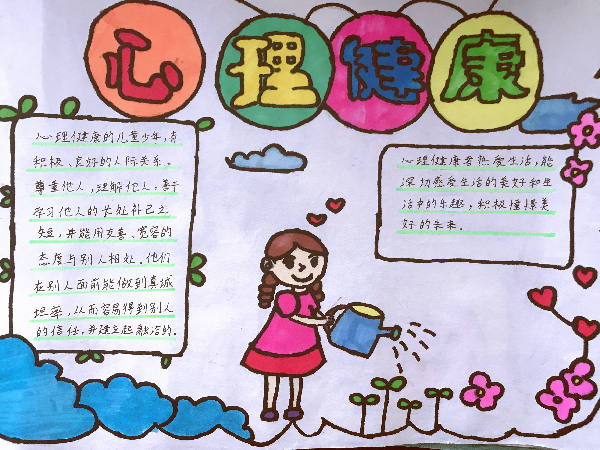 心理健康
心理健康的儿童少年，有
积极、良好的人际关系。
尊重他人，理解他人，善于
学习他人的长处补己之
短，并能用友善、宽容的
态度与别人相处。他们
在别人面前能做到真诚
坦率，从而容易得到别人
的信任，并建立起融洽的.
心理健康者热爱生活，能
深切感受生活的美好和生
活中的乐趣，积极憧憬美
好的未来。